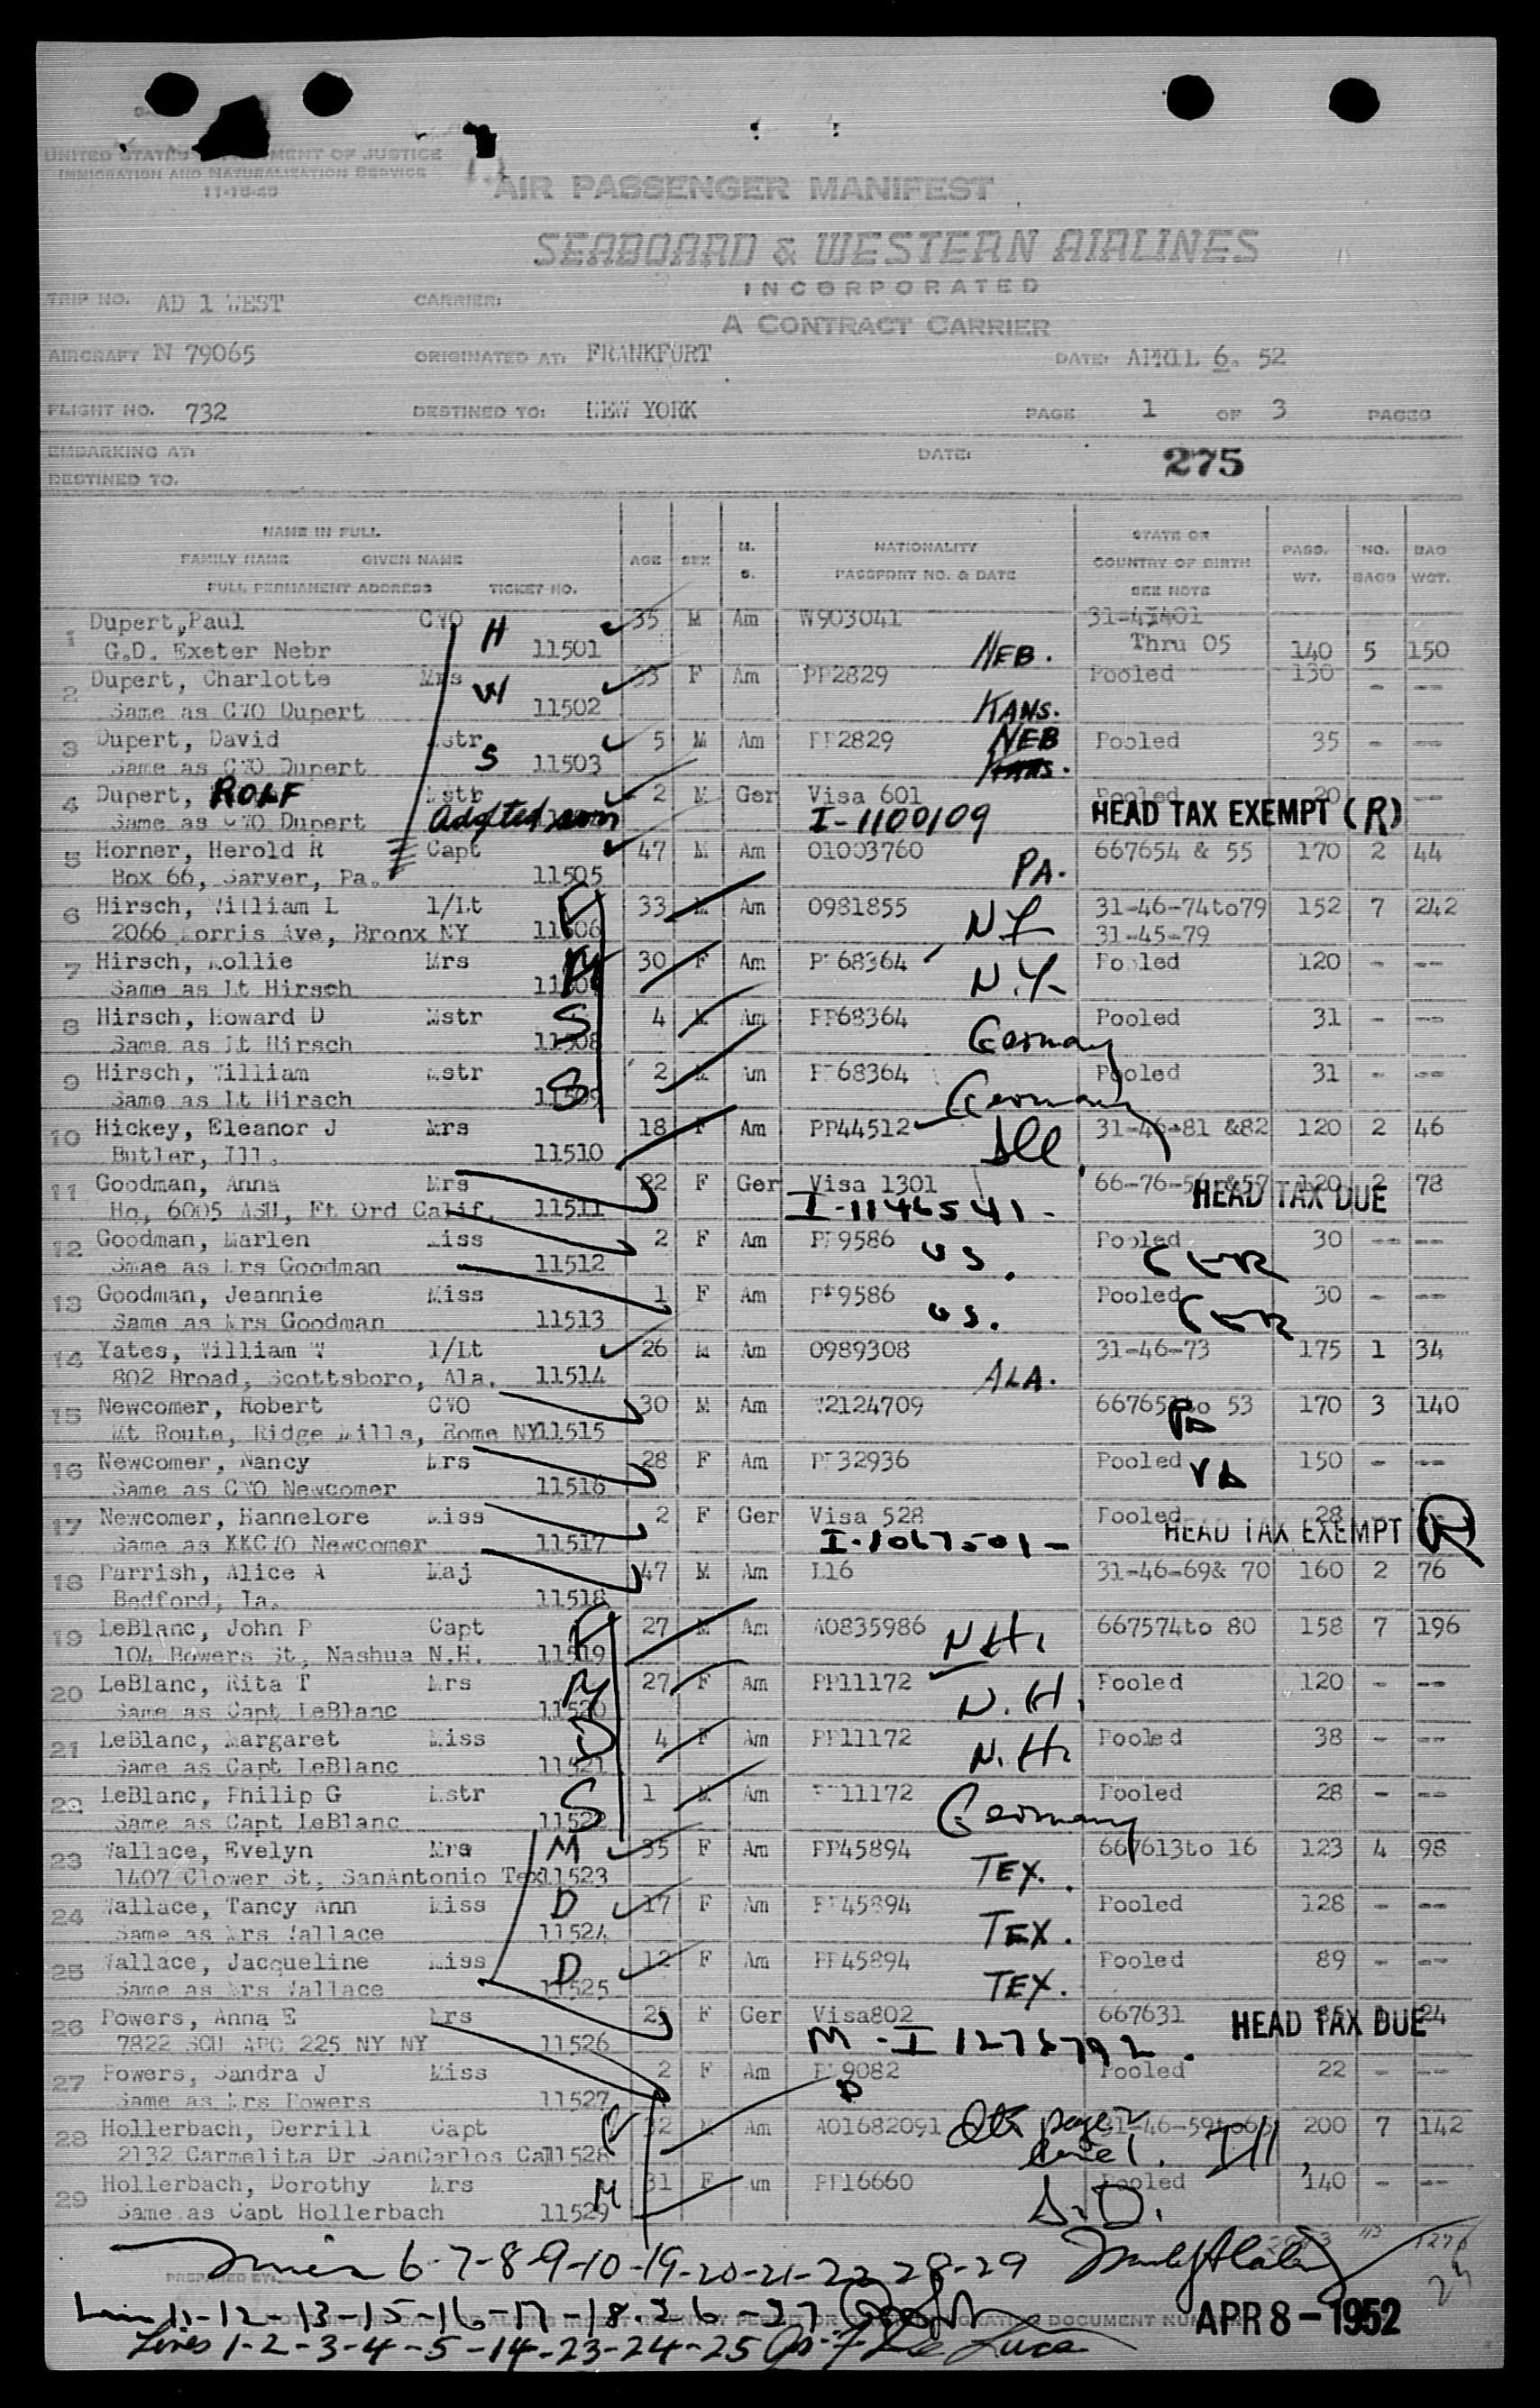 UNITED STATES DEPARTMENT OF JUSTICE
IMMIGRATION AND NATURALIZATION SERVICE
11-18-48
AIR PASSENGER MANIFEST
SEABOARD & WESTERN AIRLINES
INCORPORATED
A CONTRACT CARRIER
TRIP NO. AD 1 WEST CARRIER:
AIRCRAFT N 79065 ORIGINATED AT: FRANKFURT DATE: APRIL 6. 52
FLIGHT NO. 732 DESTINED TO: NEW YORK PAGE 1 OF 3 PAGES
EMBARKING AT: DATE: 275
DESTINED TO.
NAME IN FULL
FAMILY NAME GIVEN NAME
FULL PERMANENT ADDRESS TICKET NO.
AGE SEX M. S. NATIONALITY PASSPORT NO. & DATE STATE OR COUNTRY OF BIRTH SEE NOTE PASS. WT. NO. BAGS BAG WGT.
1 Dupert,Paul CWO H 35 M Am W903041 31-47401
G.D. Exeter Nebr 11501 NEB. Thru 05 140 5 150
2 Dupert, Charlotte Mrs W 33 F Am PP2829 Pooled 130 - --
Same as CWO Dupert 11502 KANS.
3 Dupert, David Mstr S 5 M Am PP2829 NEB Pooled 35 - --
Same as CWO Dupert 11503 KANS.
4 Dupert, ROLF Mstr 2 M Ger Visa 601 Pooled 20 --
Same as CWO Dupert Adopted son I-1100109 HEAD TAX EXEMPT (R)
5 Horner, Herold R Capt 47 M Am 01003760 667654 & 55 170 2 44
Box 66, Sarver, Pa. 11505 PA.
6 Hirsch, William L 1/Lt F 33 M Am 0981855 31-46-74to79 152 7 242
2066 Morris Ave, Bronx NY 11506 NY 31-45-79
7 Hirsch, Mollie Mrs M 30 F Am PP68364 Pooled 120 - --
Same as Lt Hirsch 11507 N.Y.
8 Hirsch, Howard D Mstr S 4 M Am PP68364 Pooled 31 - --
Same as Lt Hirsch 11508 Germany
9 Hirsch, William Mstr 2 M Am PP68364 Pooled 31 - --
Same as Lt Hirsch S 11509 Germany
10 Hickey, Eleanor J Mrs 18 F Am PP44512 31-46-81 &82 120 2 46
Butler, Ill. 11510 Ill.
11 Goodman, Anna Mrs 22 F Ger Visa 1301 66-76-56 &57 120 2 78
Hq, 6005 ASU, Ft Ord Calif. 11511 I-1146541- HEAD TAX DUE
12 Goodman, Marlen Miss 2 F Am PP9586 US. Pooled 30 -- --
Smae as Mrs Goodman 11512 GER
13 Goodman, Jeannie Miss 1 F Am PP9586 Pooled 30 - --
Same as Mrs Goodman 11513 US. GER
14 Yates, William W 1/Lt 26 M Am 0989308 31-46-73 175 1 34
802 Broad, Scottsboro, Ala. 11514 ALA.
15 Newcomer, Robert CWO 30 M Am W2124709 667651to 53 170 3 140
Mt Route, Ridge Mills, Rome NY11515 PA
16 Newcomer, Nancy Mrs 28 F Am PP32936 Pooled 150 - --
Same as CWO Newcomer 11516 VA
17 Newcomer, Hannelore Miss 2 F Ger Visa 528 Pooled 28
Same as XXCWO Newcomer 11517 I-1067501- HEAD TAX EXEMPT (R)
18 Parrish, Alice A Maj 47 M Am L16 31-46-69& 70 160 2 76
Bedford, Ia. 11518
19 LeBlanc, John P Capt F 27 M Am AO835986 667574to 80 158 7 196
104 Bowers St, Nashua N.H. 11519 N.H.
20 LeBlanc, Rita T Mrs M 27 F Am PP11172 Pooled 120 - --
Same as Capt LeBlanc 11520 N.H.
21 LeBlanc, Margaret Miss D 4 F Am PP11172 Pooled 38 - --
Same as Capt LeBlanc 11521 N.H.
22 LeBlanc, Philip G Mstr S 1 M Am PP11172 Pooled 28 - --
Same as Capt LeBlanc 11522 Germany
23 Wallace, Evelyn Mrs M 35 F Am PP45894 667613to 16 123 4 98
1407 Clower St, SanAntonio Tex11523 TEX.
24 Wallace, Tancy Ann Miss D 17 F Am PP45894 Pooled 128 - --
Same as Mrs Wallace 11524 TEX.
25 Wallace, Jacqueline Miss D 12 F Am PP45894 Pooled 89 - --
Same as Mrs Wallace 11525 TEX.
26 Powers, Anna E Mrs 25 F Ger Visa802 667631 24
7822 SCU APO 225 NY NY 11526 M-I 1275792. HEAD TAX DUE
27 Powers, Sandra J Miss 2 F Am PP9082 Pooled 22 - --
Same as Mrs Powers 11527 D
28 Hollerbach, Derrill Capt F 32 M Am AO1682091 31-46-59to65 200 7 142
2132 Carmelita Dr SanCarlos Cal11528 page 2 line 1. Ill.
29 Hollerbach, Dorothy Mrs 31 F Am PP16660 Pooled 140 - --
Same as Capt Hollerbach M 11529 S.D.
Lines 6-7-8-9-10-19-20-21-22 28-29
PREPARED BY:
Lines 11-12-13-15-16-17-18-26-27 DOCUMENT NUMBER APR 8-1952
Lines 1-2-3-4-5-14-23-24-25 De Luca